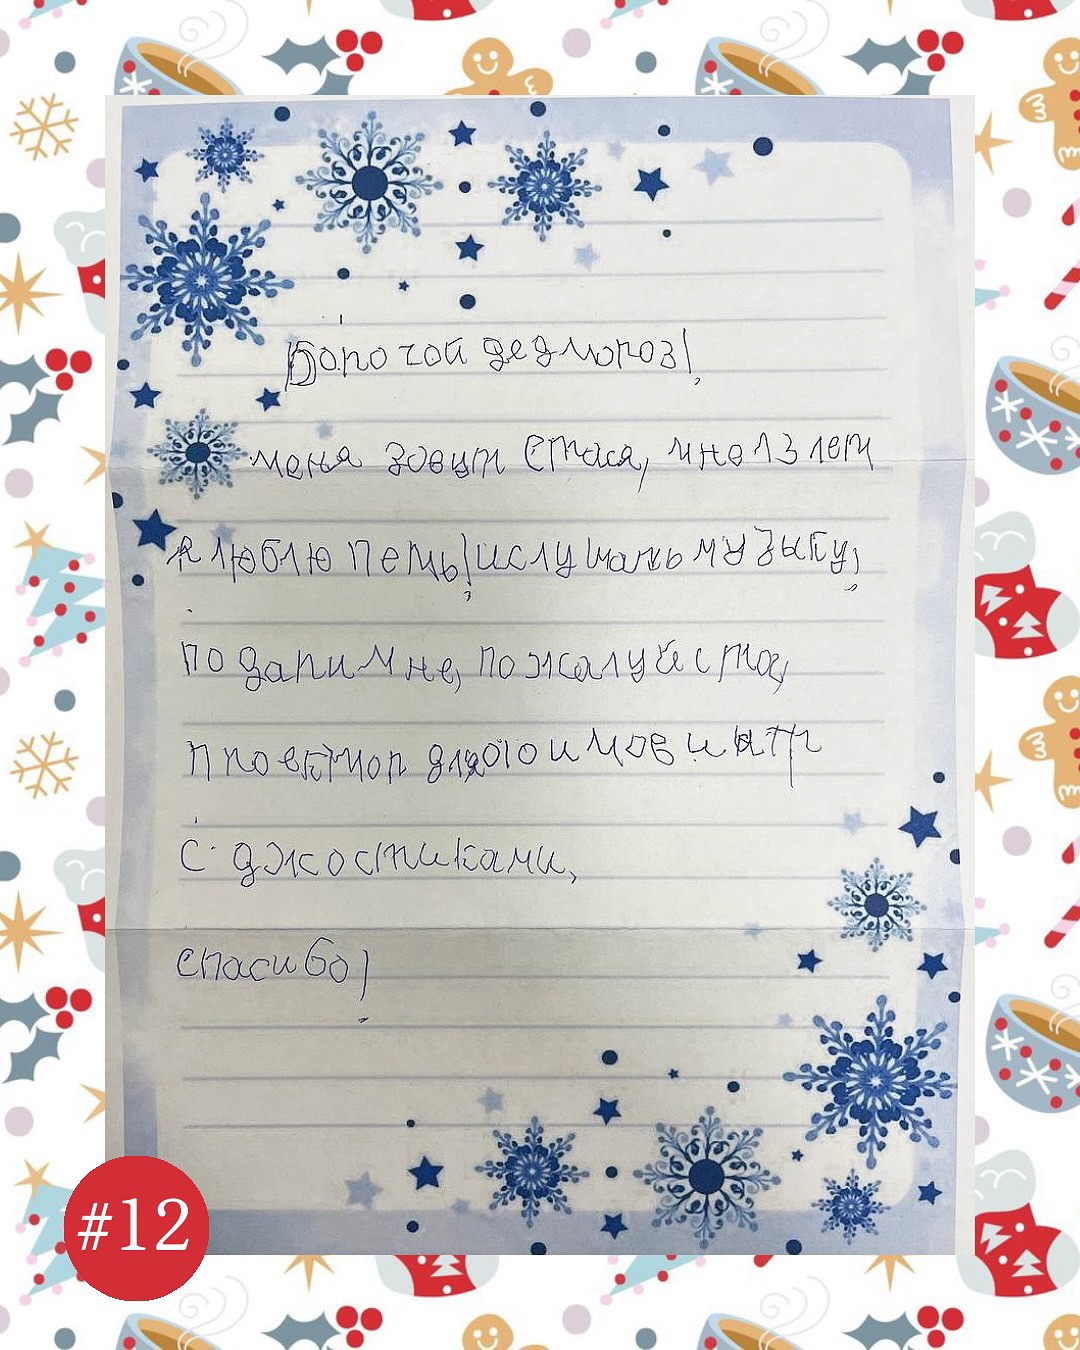 Дорогой дед мороз!
меня зовут Стася, мне 13 лет
я люблю петь, и слушать музыку,
подари мне, пожалуйста,
проектор для
с джостиками,
спасибо!
#12